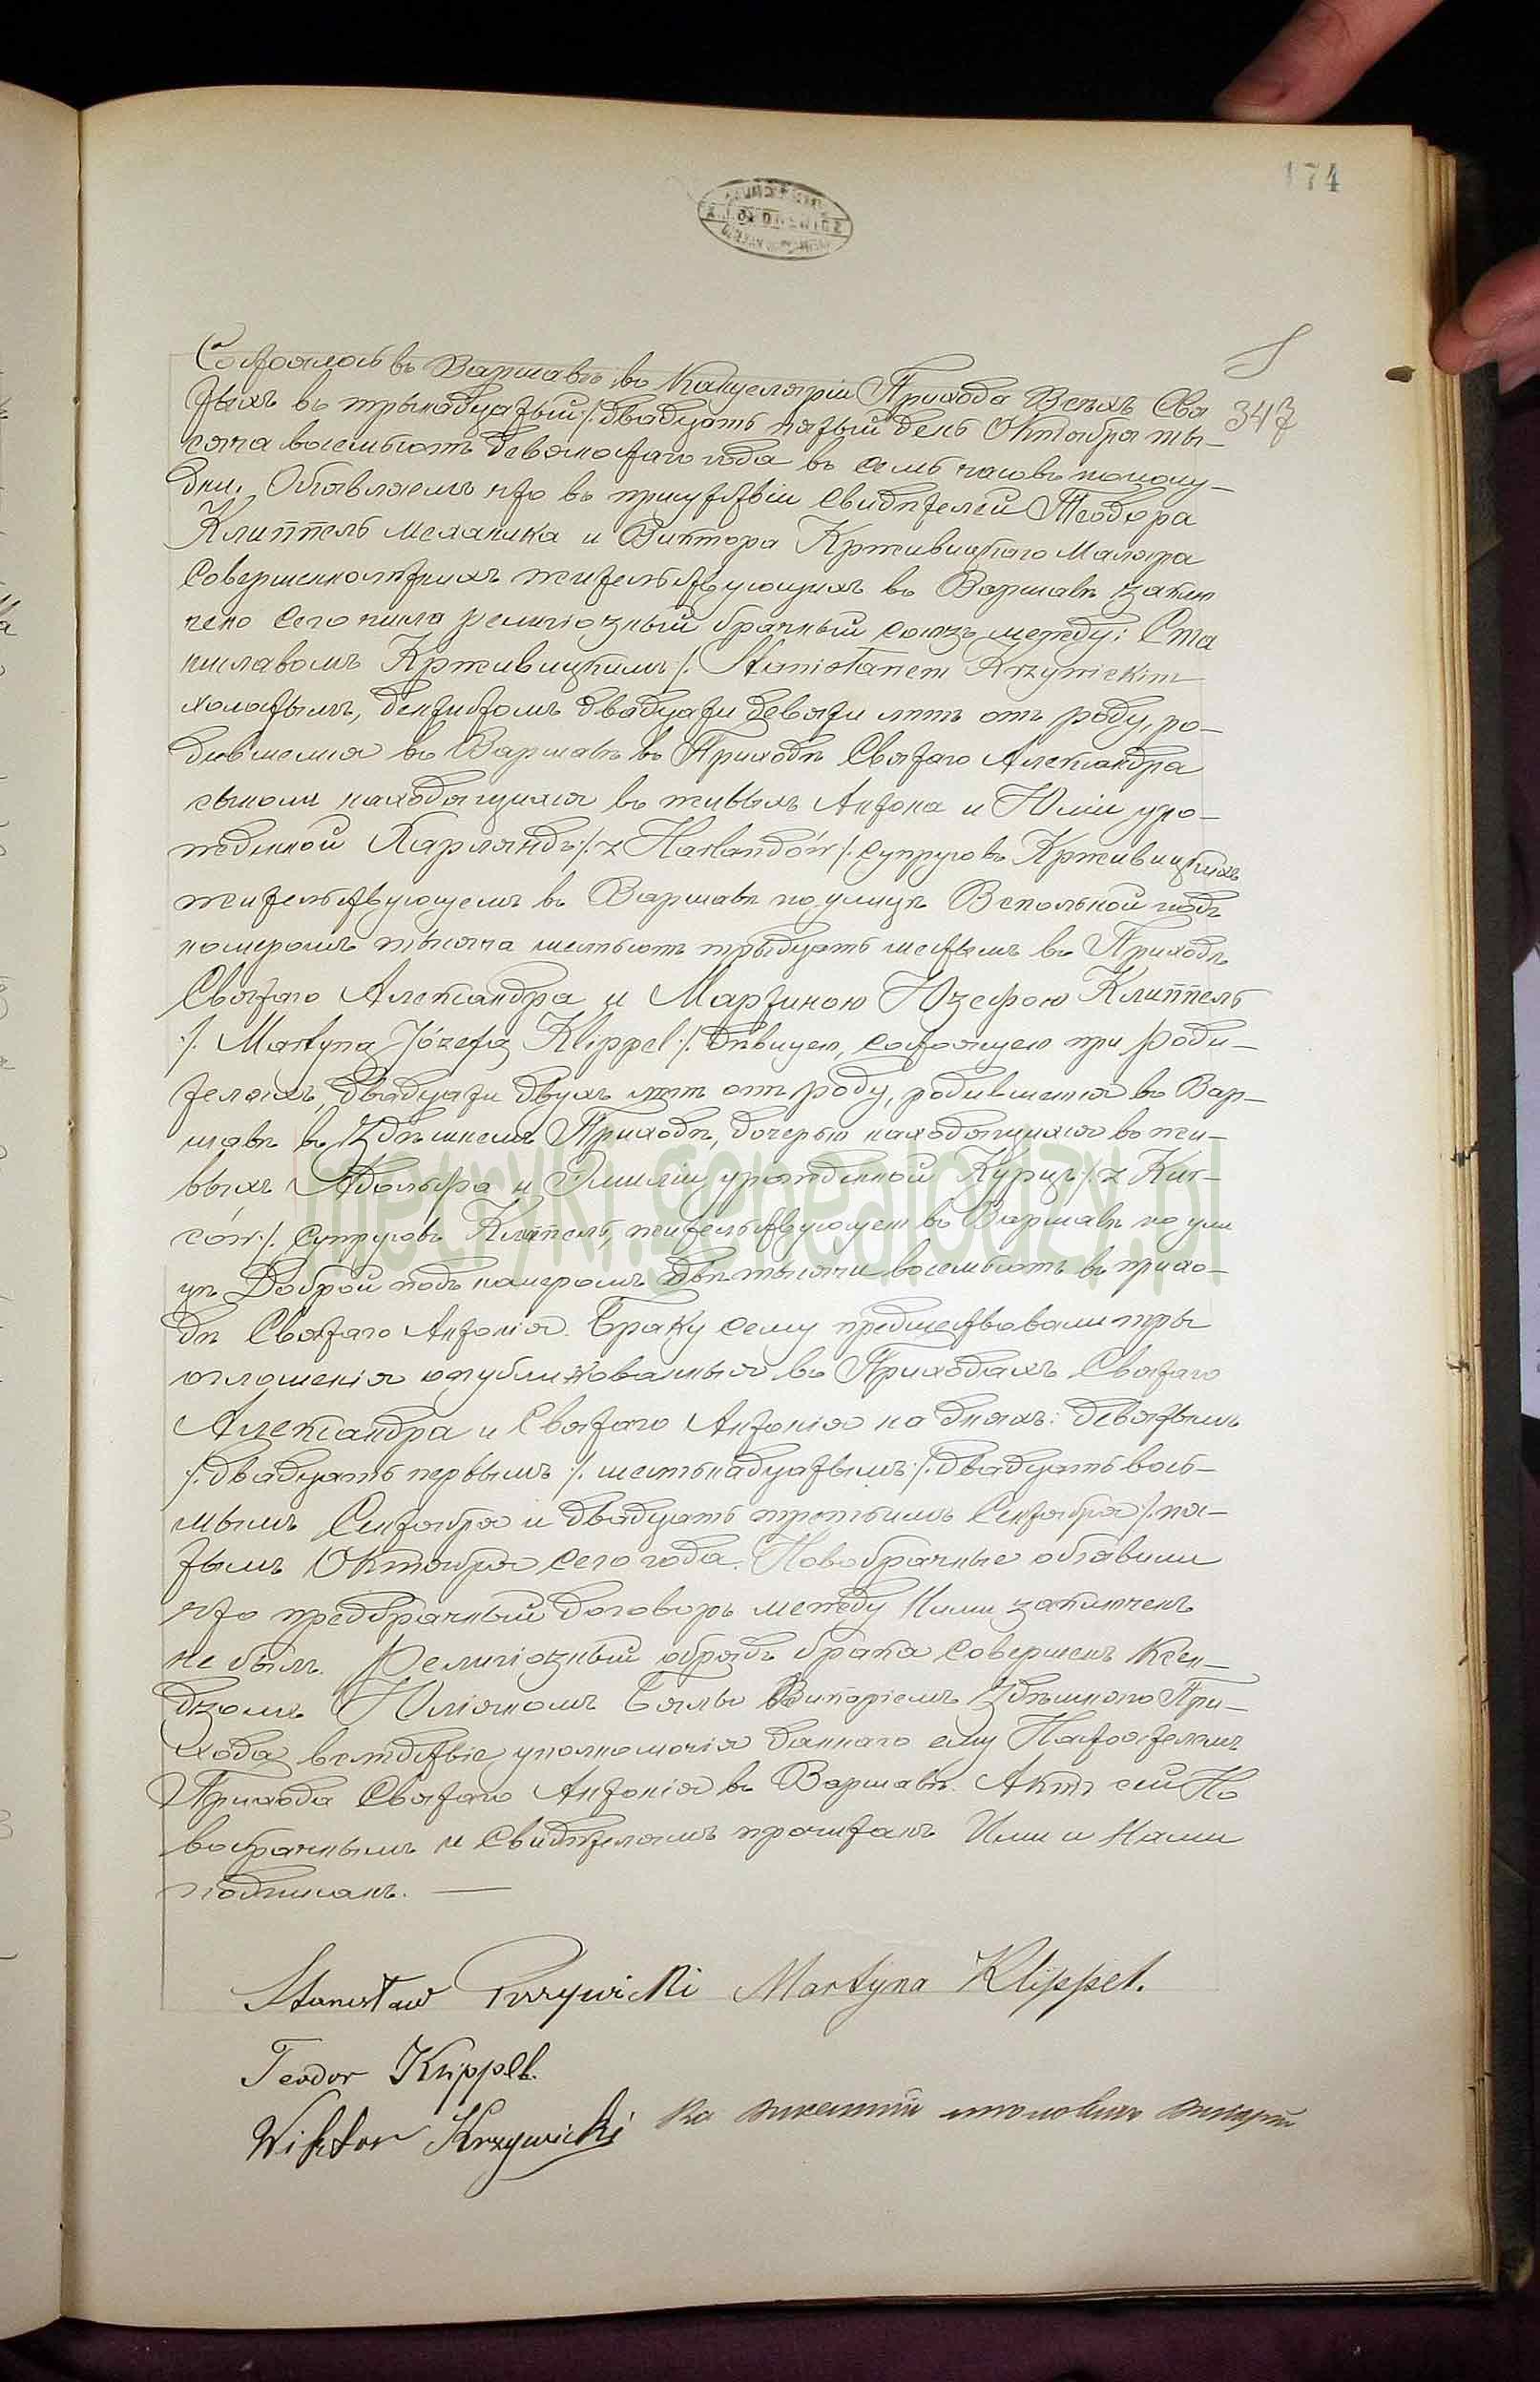 174
347
Состоялось въ Варшавѣ въ Канцеляріи Прихода Всѣхъ Свя
тыхъ въ трынадцатый /: двадцать пятый день Октября ты-
сяча восемьсотъ девяностаго года въ семь часовъ пополу-
дни. Объявляемъ что въ присутствіи свидѣтелей Теодора
Клиппель механика и Виктора Крживицкаго Маляра
совершеннолѣтнихъ жительствующихъ въ Варшавѣ заклю
чено сего числа религіозный брачный союзъ между: Ста
ниславомъ Крживицкимъ /: Stanisławem Krzywickim
холостымъ, дентистомъ двадцати девяти лѣтъ отъ роду, ро-
дившемся въ Варшавѣ въ Приходѣ Святаго Александра
сыномъ находящихся въ живыхъ Антона и Юліи уро-
жденной Харляндъ /: z Harlandów /: супруговъ Крживицкихъ
жительствующемъ въ Варшавѣ по улицѣ Вспольной подъ
номеромъ тысяча шестьсотъ трыдцать шестымъ въ Приходѣ
Святаго Александра и Мартиною Юзефою Клиппель
/: Martyną Józefą Klippel /: дѣвицею, состоящею при роди-
теляхъ, двадцати двухъ лѣтъ отъ роду, родившеюся въ Вар-
шавѣ въ Здѣшнемъ Приходѣ, дочерью находящихся въ жи-
выхъ Адольфа и Эмиліи урожденной Курцъ /: z Kur-
ców /: супруговъ Клиппель, жительствующею въ Варшавѣ по ули
цѣ Доброй подъ номеромъ двѣ тысячи восемьсотъ въ прихо-
дѣ Святаго Антонія. Браку сему предшествовали тры
оглошенія опубликованныя въ Приходахъ Святаго
Александра и Святаго Антонія на дняхъ: девятымъ
/: двадцать первымъ /: шестьнадцатымъ /: двадцать вось-
мымъ Сентября и двадцать третьимъ Сентября /: пя-
тымъ Октября сего года. Новобрачные объявили
что предбрачный договоръ между Ними заключенъ
не былъ. Религіозный обрядъ брака совершенъ Ксен-
дзомъ Юліяномъ Бялъ Викаріемъ Здѣшняго При-
хода вслѣдствіе уполномочія даннаго ему Настоятелемъ
Прихода Святаго Антонія въ Варшавѣ. Актъ сей Но
вобрачнымъ и Свидѣтелямъ прочитанъ Ими и Нами
подписанъ. —
Stanisław Krzywicki Martyna Klippel.
Teodor Klippel.
Wiktor Krzywicki
metryki.genealodzy.pl